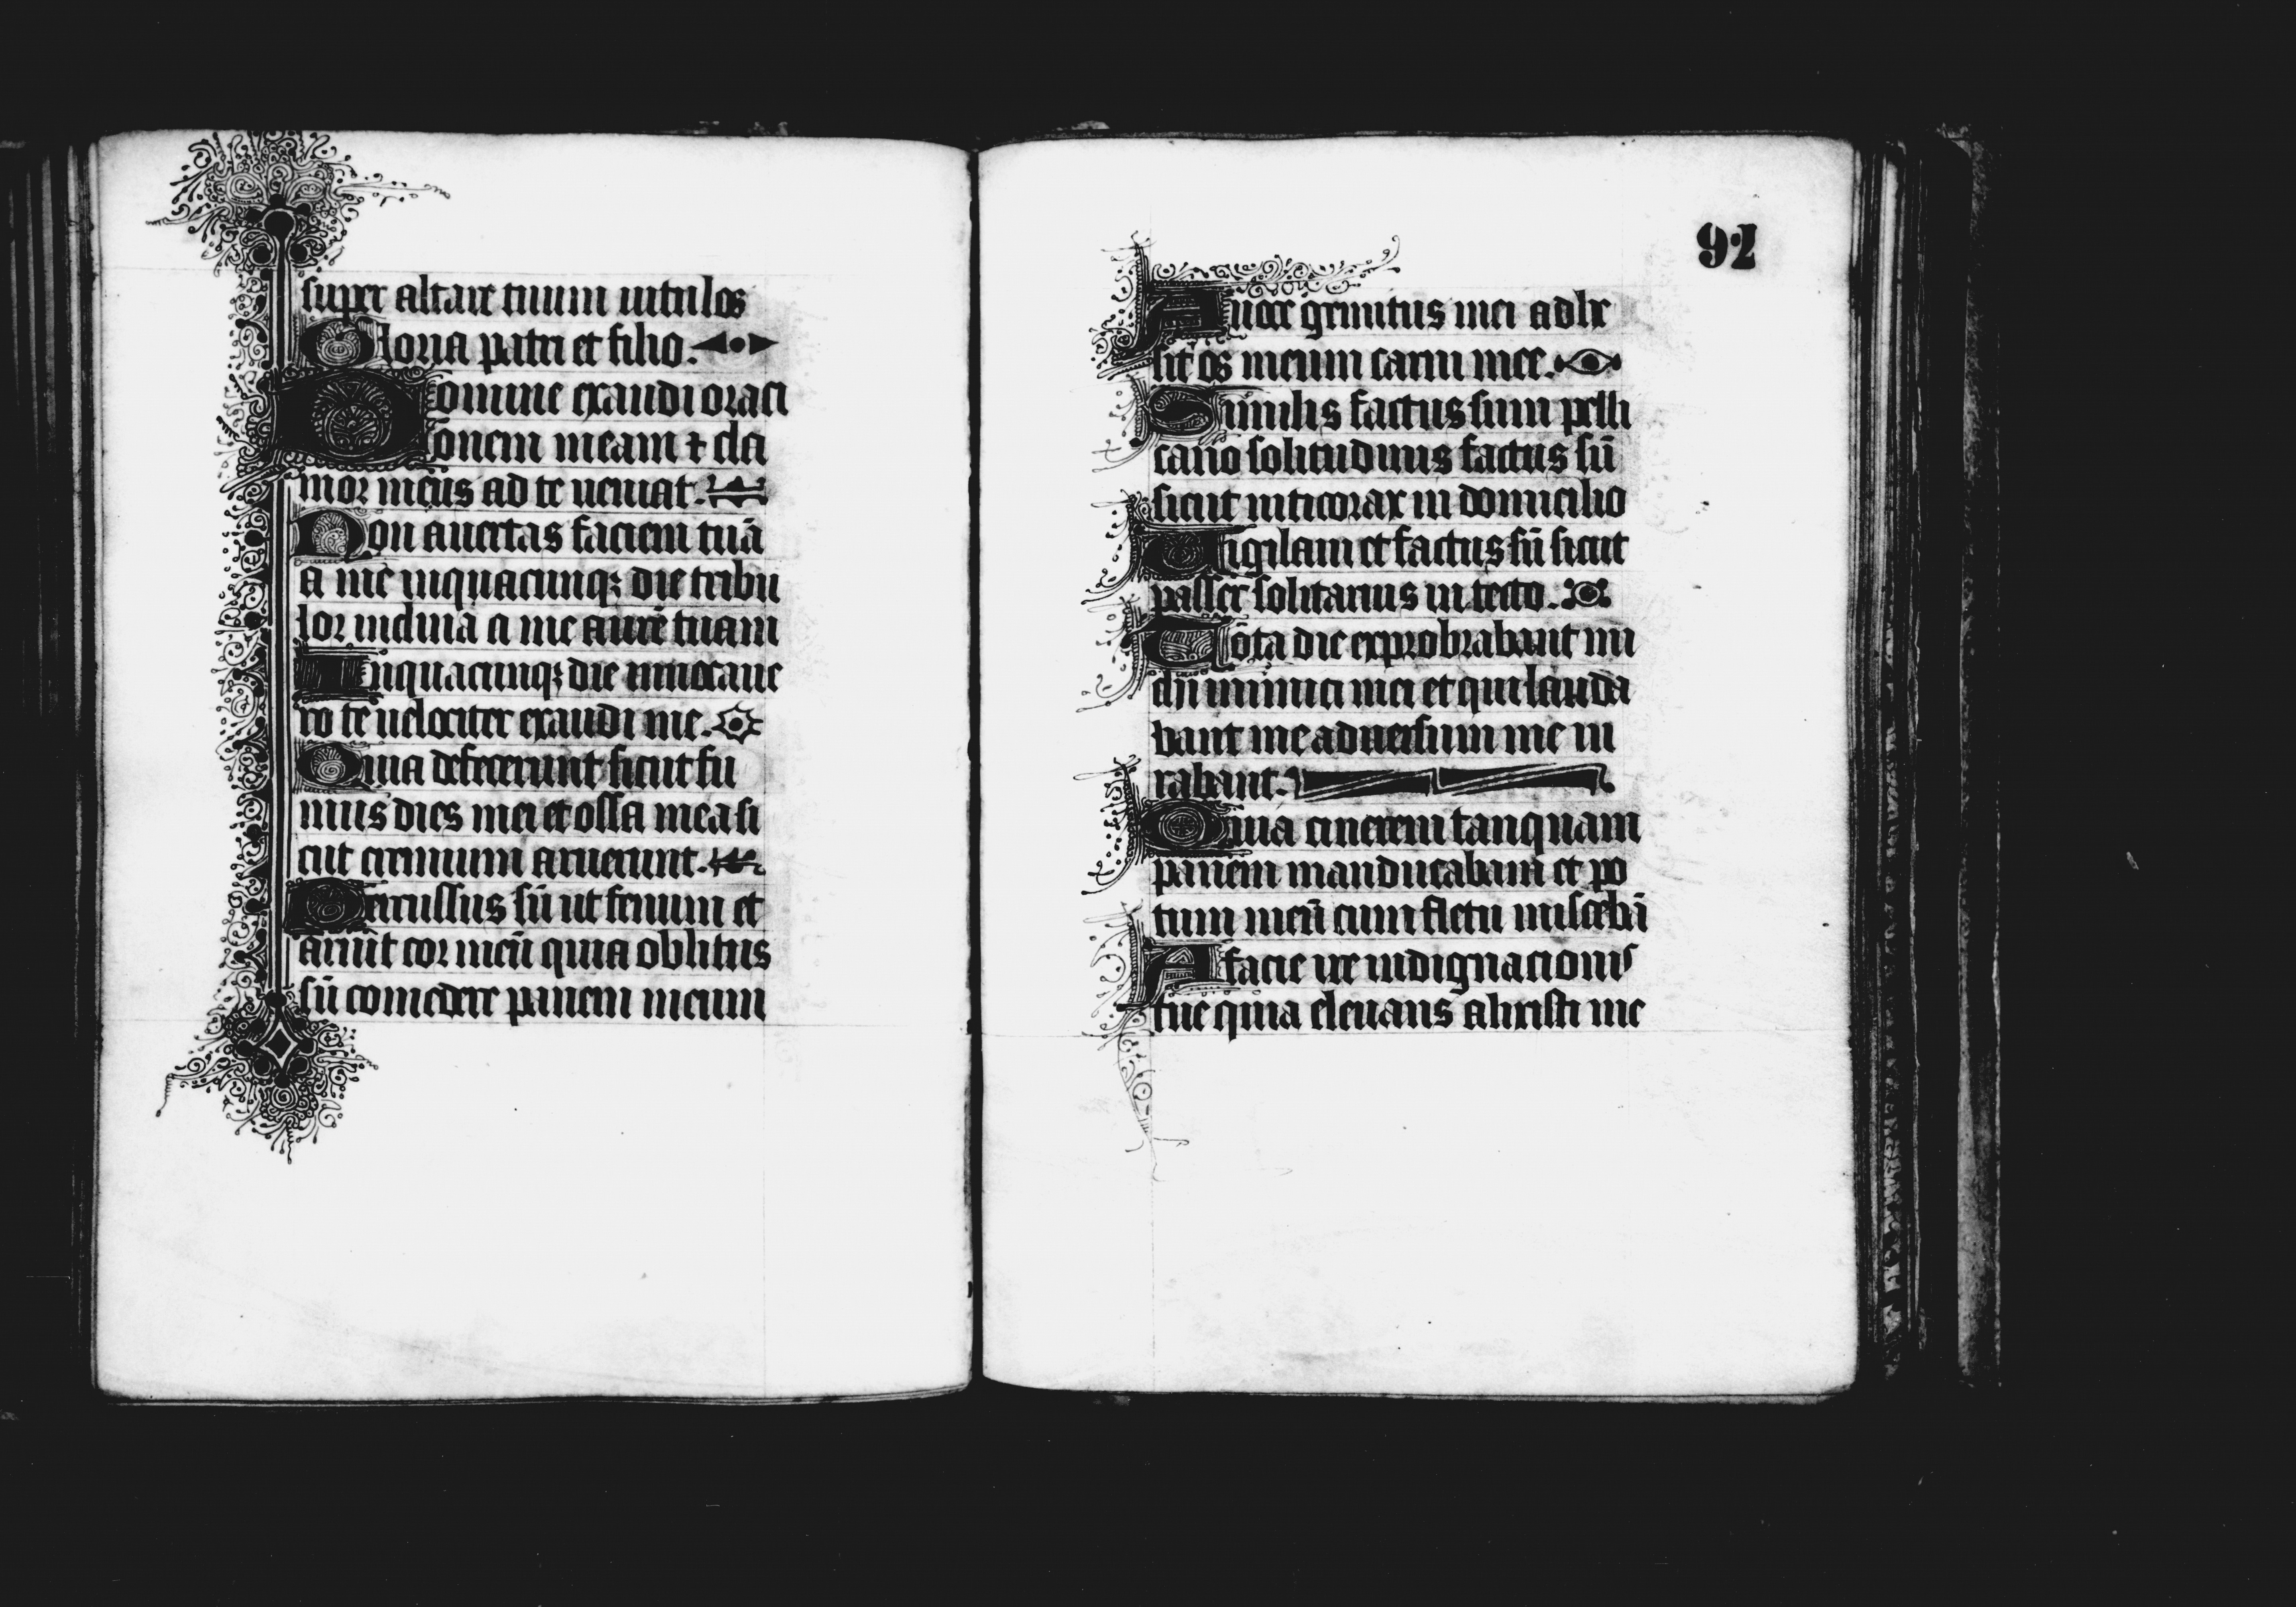 super altare tuum uitulos
Gloria patri et filio.
Domine exaudi oraci
onem meam ⁊ cla
mor meus ad te ueniat.
Non auertas faciem tuā
a me inquacunqꝫ die tribu
lor inclina a me aurē tuam
Inquacunqꝫ die inuocaue
ro te uelociter exaudi me.
Quia defecerunt sicut fu
mus dies mei et ossa mea si
cut cremium aruerunt.
Percussus sū ut fenum et
aruit cor meū quia oblitus
sū comedere panem meum
92
A uoce gemitus mei adhe
sit os meum carni mee.
Similis factus sum pelli
cano solitudinis factus sū
sicut niticorax in domicilio
Vigilaui et factus sū sicut
passer solitarius in tecto.
Tota die exprobrabant mi
chi inimici mei et qui lauda
bant me aduersum me iu
rabant.
Quia cinerem tanquam
panem manducabam et po
tum meū cum fletu miscebā
A facie ire indignacionis
tue quia eleuans alixisti me